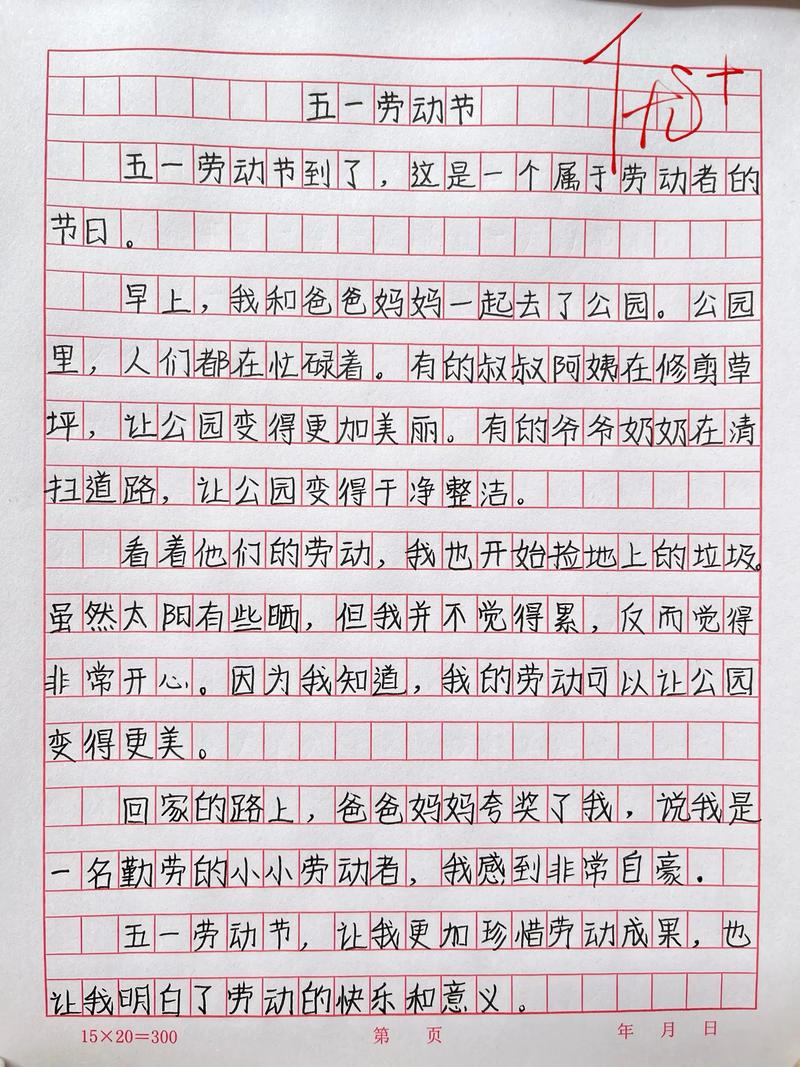 优+
五一劳动节
五一劳动节到了，这是一个属于劳动者的
节日。
早上，我和爸爸妈妈一起去了公园。公园
里，人们都在忙碌着。有的叔叔阿姨在修剪草
坪，让公园变得更加美丽。有的爷爷奶奶在清
扫道路，让公园变得干净整洁。
看着他们的劳动，我也开始捡地上的垃圾。
虽然太阳有些晒，但我并不觉得累，反而觉得
非常开心。因为我知道，我的劳动可以让公园
变得更美。
回家的路上，爸爸妈妈夸奖了我，说我是
一名勤劳的小小劳动者，我感到非常自豪.
五一劳动节，让我更加珍惜劳动成果，也
让我明白了劳动的快乐和意义。
15×20=300 第 页 年 月 日